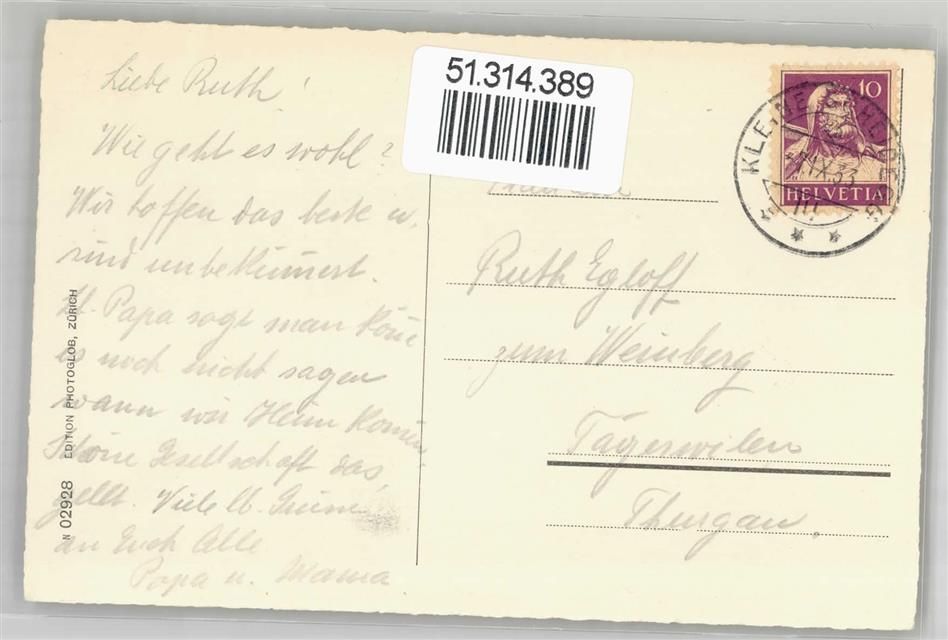 51.314.389
Liebe Ruth!
Wie geht es wohl?
Wir hoffen das beste u.
sind unbekümert.
Lb. Papa sagt man köne
es noch nicht sagen
wann wir Heim komen.
Schöne Gesellschaft das,
gellt. Viele lb. Grüsse
an Euch Alle
Papa u. Mama
N 02928 EDITION PHOTOGLOB, ZÜRICH
10
HELVETIA
KLEINE
IX.33
Fräulein
Ruth Egloff
zum Weinberg
Tägerwilen
Thurgau.